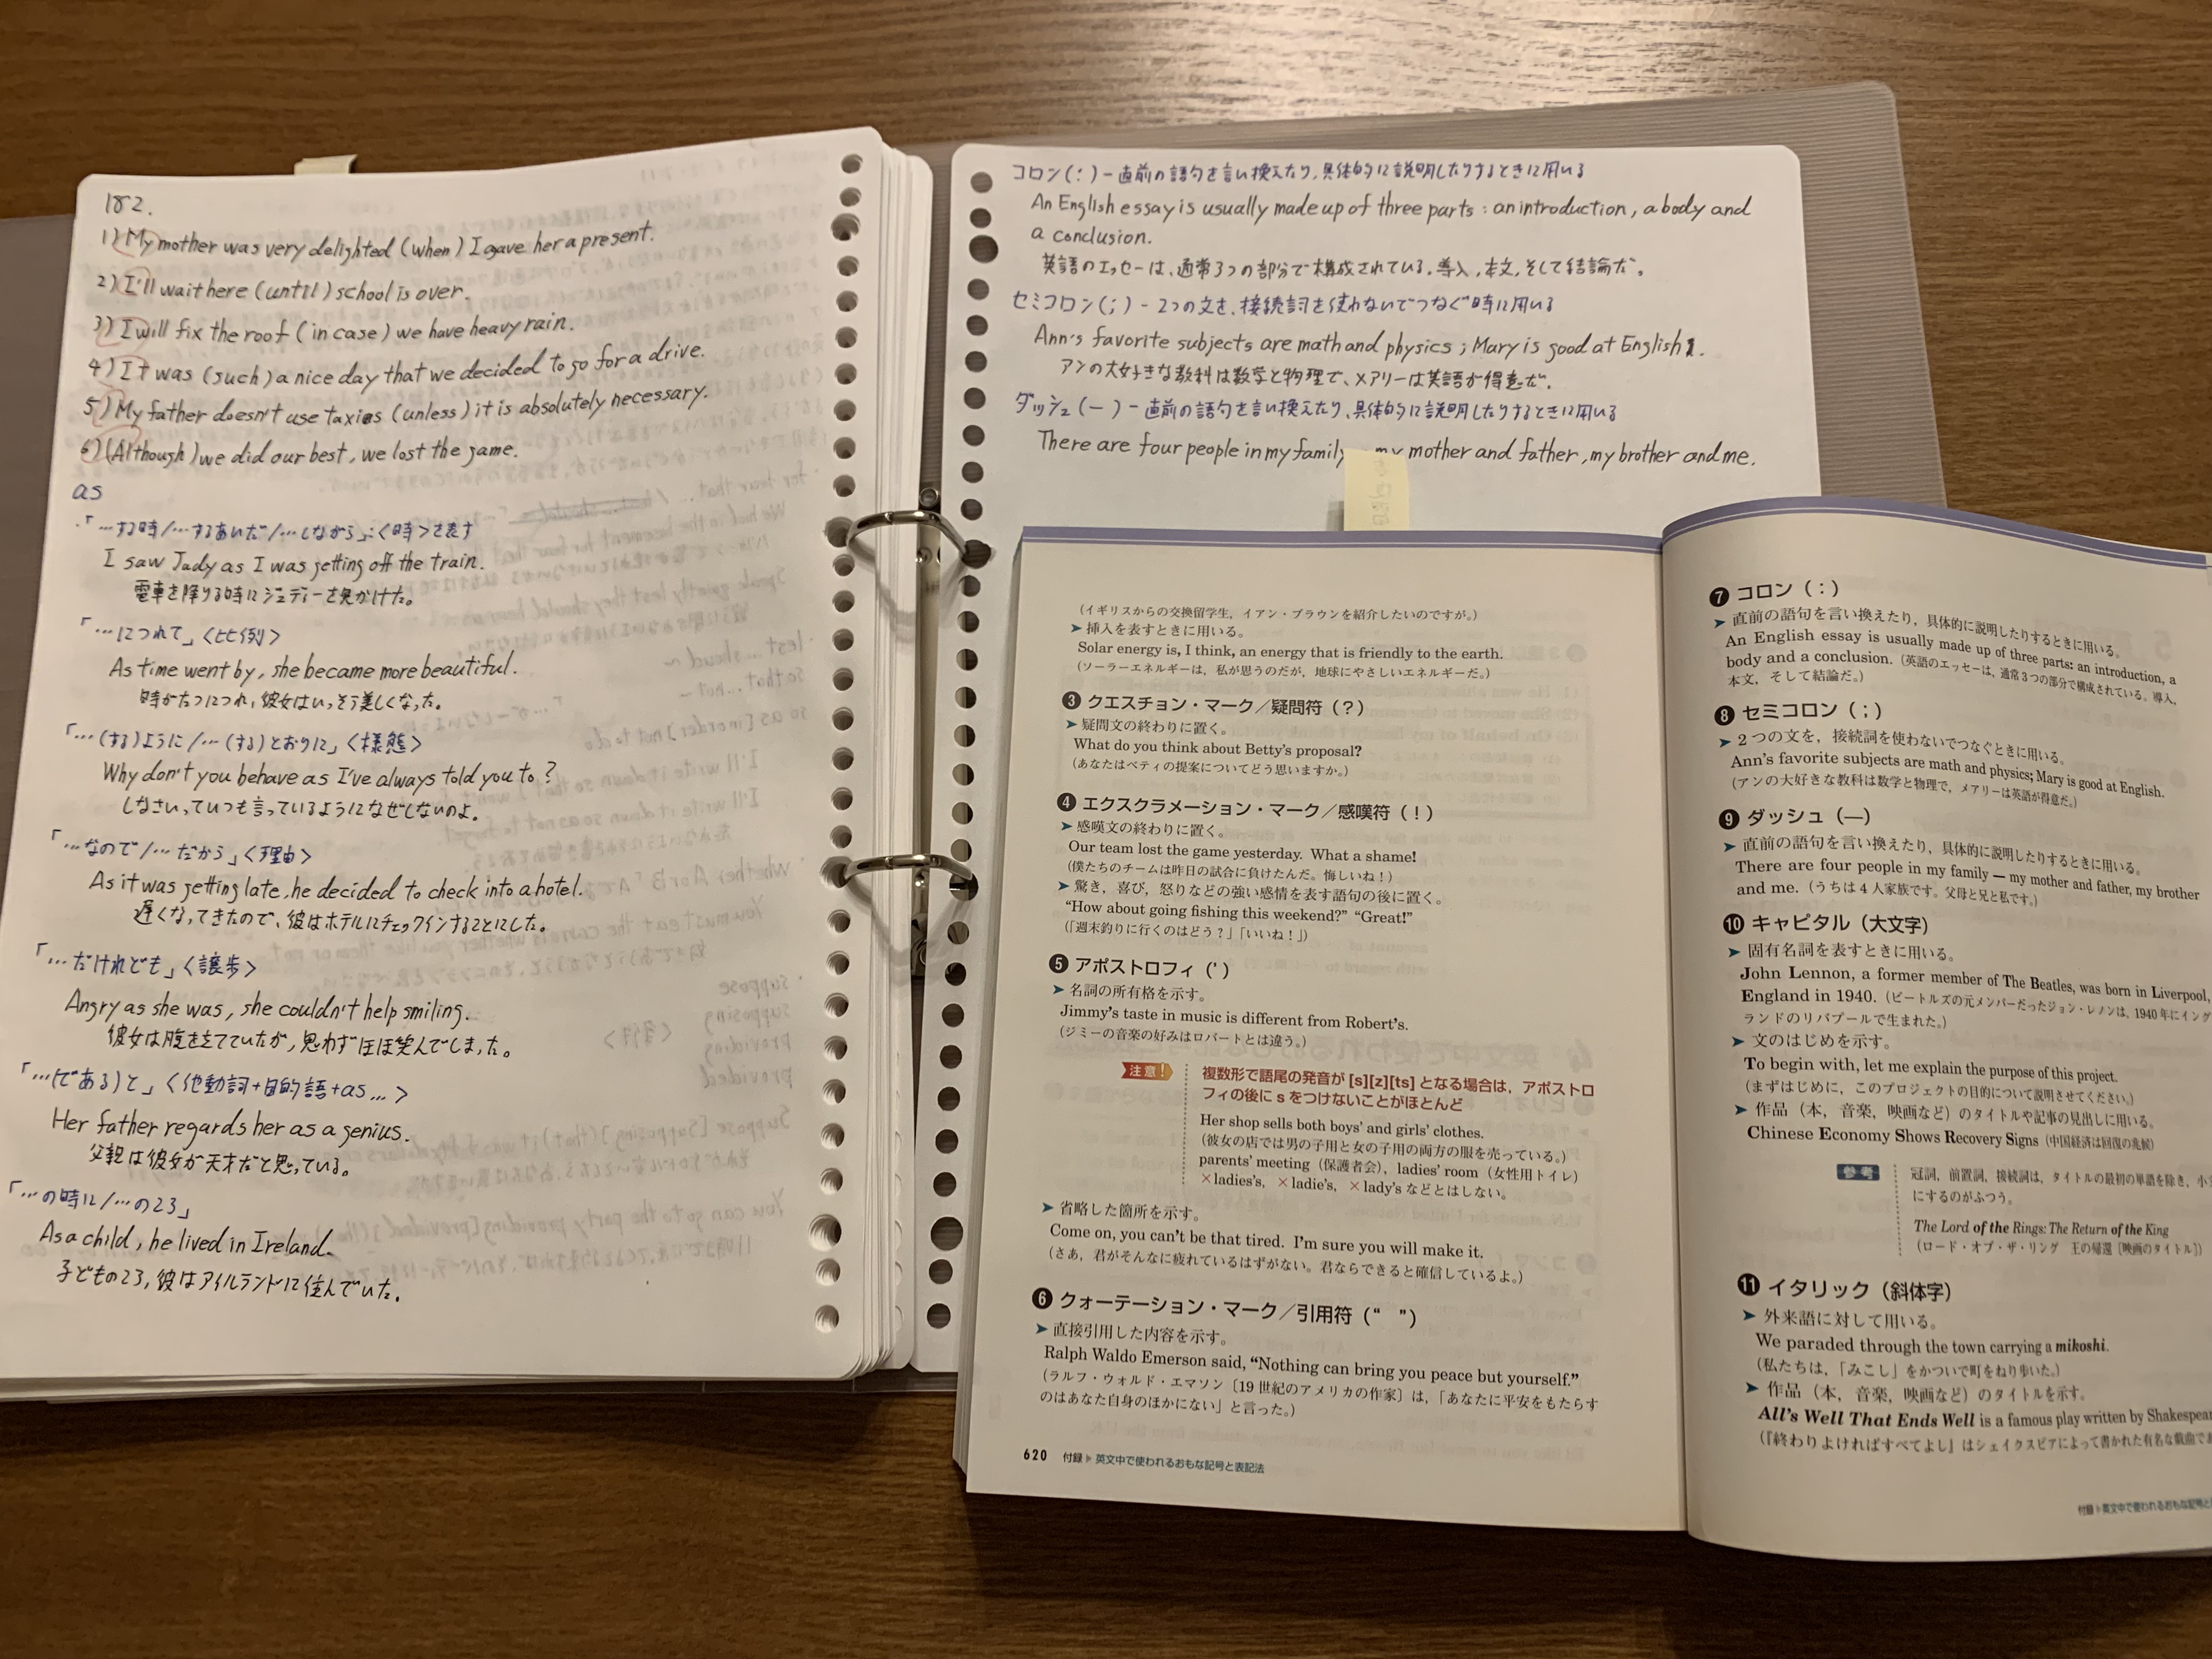 182.
1) My mother was very delighted (when) I gave her a present.
2) I'll wait here (until) school is over.
3) I will fix the roof (in case) we have heavy rain.
4) It was (such) a nice day that we decided to go for a drive.
5) My father doesn't use taxies (unless) it is absolutely necessary.
6) (Although) we did our best, we lost the game.
as
・「…する時/…するあいだ/…しながら」:〈時〉を表す
I saw Judy as I was getting off the train.
電車を降りる時にジュディーを見かけた。
「…につれて」〈比例〉
As time went by, she became more beautiful.
時がたつにつれ、彼女はいっそう美しくなった。
「…(する)ように/…(する)とおりに」〈様態〉
Why don't you behave as I've always told you to?
しなさいっていつも言っているようになぜしないのよ。
「…なので/…だから」〈理由〉
As it was getting late, he decided to check into a hotel.
遅くなってきたので、彼はホテルにチェックインすることにした。
「…だけれども」〈譲歩〉
Angry as she was, she couldn't help smiling.
彼女は腹を立てていたが、思わずほほ笑んでしまった。
「…(である)と」〈他動詞+目的語+as…〉
Her father regards her as a genius.
父親は彼女が天才だと思っている。
「…の時に/…のころ」
As a child, he lived in Ireland.
子どものころ, 彼はアイルランドに住んでいた。
コロン(:)－直前の語句を言い換えたり, 具体的に説明したりするときに用いる
An English essay is usually made up of three parts : an introduction, a body and
a conclusion.
英語のエッセーは、通常3つの部分で構成されている。導入, 本文, そして結論だ。
セミコロン(;)－2つの文を、接続詞を使わないでつなぐ時に用いる
Ann's favorite subjects are math and physics ; Mary is good at English.
アンの大好きな教科は数学と物理で、メアリーは英語が得意だ。
ダッシュ(ー)－直前の語句を言い換えたり、具体的に説明したりするときに用いる
There are four people in my family my mother and father, my brother and me.
(イギリスからの交換留学生, イアン・ブラウンを紹介したいのですが。)
➤ 挿入を表すときに用いる。
Solar energy is, I think, an energy that is friendly to the earth.
(ソーラーエネルギーは, 私が思うのだが, 地球にやさしいエネルギーだ。)
❸ クエスチョン・マーク／疑問符（?）
➤ 疑問文の終わりに置く。
What do you think about Betty's proposal?
(あなたはベティの提案についてどう思いますか。)
❹ エクスクラメーション・マーク／感嘆符（!）
➤ 感嘆文の終わりに置く。
Our team lost the game yesterday. What a shame!
(僕たちのチームは昨日の試合に負けたんだ。悔しいね！)
➤ 驚き, 喜び, 怒りなどの強い感情を表す語句の後に置く。
“How about going fishing this weekend?” “Great!”
(「週末釣りに行くのはどう？」「いいね！」)
❺ アポストロフィ（'）
➤ 名詞の所有格を示す。
Jimmy's taste in music is different from Robert's.
(ジミーの音楽の好みはロバートとは違う。)
注意！ 複数形で語尾の発音が [s][z][ts] となる場合は, アポストロ
フィの後に s をつけないことがほとんど
Her shop sells both boys' and girls' clothes.
(彼女の店では男の子用と女の子用の両方の服を売っている。)
parents' meeting（保護者会）, ladies' room（女性用トイレ）
×ladies's, ×ladie's, ×lady's などとはしない。
➤ 省略した箇所を示す。
Come on, you can't be that tired. I'm sure you will make it.
(さあ, 君がそんなに疲れているはずがない。君ならできると確信しているよ。)
❻ クォーテーション・マーク／引用符（“ ”）
➤ 直接引用した内容を示す。
Ralph Waldo Emerson said, “Nothing can bring you peace but yourself.”
(ラルフ・ウォルド・エマソン〔19 世紀のアメリカの作家〕は,「あなたに平安をもたらす
のはあなた自身のほかにない」と言った。)
620 付録 ▶ 英文中で使われるおもな記号と表記法
❼ コロン（:）
➤ 直前の語句を言い換えたり, 具体的に説明したりするときに用いる。
An English essay is usually made up of three parts: an introduction, a
body and a conclusion.（英語のエッセーは, 通常 3 つの部分で構成されている。導入,
本文, そして結論だ。）
❽ セミコロン（;）
➤ 2 つの文を, 接続詞を使わないでつなぐときに用いる。
Ann's favorite subjects are math and physics; Mary is good at English.
(アンの大好きな教科は数学と物理で, メアリーは英語が得意だ。)
❾ ダッシュ（—）
➤ 直前の語句を言い換えたり, 具体的に説明したりするときに用いる。
There are four people in my family — my mother and father, my brother
and me.（うちは 4 人家族です。父母と兄と私です。）
❿ キャピタル（大文字）
➤ 固有名詞を表すときに用いる。
John Lennon, a former member of The Beatles, was born in Liverpool,
England in 1940.（ビートルズの元メンバーだったジョン・レノンは, 1940 年にイング
ランドのリバプールで生まれた。）
➤ 文のはじめを示す。
To begin with, let me explain the purpose of this project.
(まずはじめに, このプロジェクトの目的について説明させてください。)
➤ 作品（本, 音楽, 映画など）のタイトルや記事の見出しに用いる。
Chinese Economy Shows Recovery Signs（中国経済は回復の兆候）
参考 冠詞, 前置詞, 接続詞は, タイトルの最初の単語を除き,
にするのがふつう。
The Lord of the Rings: The Return of the King
(ロード・オブ・ザ・リング 王の帰還［映画のタイトル］)
⓫ イタリック（斜体字）
➤ 外来語に対して用いる。
We paraded through the town carrying a mikoshi.
(私たちは,「みこし」をかついで町をねり歩いた。)
➤ 作品（本, 音楽, 映画など）のタイトルを示す。
All's Well That Ends Well is a famous play written by Shakespear
(『終わりよければすべてよし』はシェイクスピアによって書かれた有名な戯曲で
付録 ▶ 英文中で使われるおもな記号と